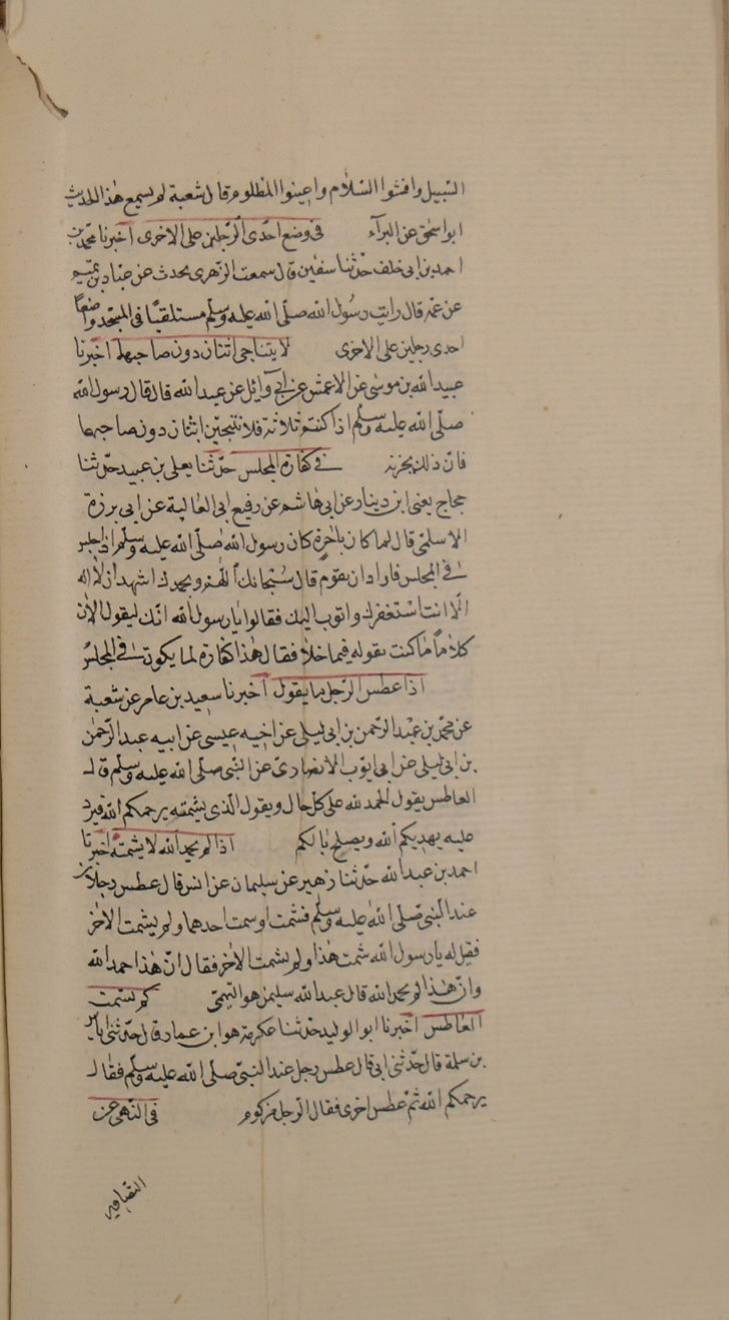 السبيل وافشوا السلام واعينوا المظلوم قال شعبة لم يسمع هذا الحديث
ابو اسحق عن البرآء في وضع احدى الرجلين على الاخرى اخبرنا محمد بن
احمد بن ابى خلف حدثنا سفين قال سمعت الزهرى يحدث عن عباد بن تميم
عن عمه قال رايت رسول الله صلى الله عليه وسلم مستلقيًا في المسجد واضعًا
احدى رجلين على الاخرى لا يتناجى اثنان دون صاحبهما اخبرنا
عبيد الله بن موسى عن الاعمش عن ابي وايل عن عبد الله قال قال رسول الله
صلى الله عليه وسلم اذا كنتم ثلاثة فلا ينتجين اثنان دون صاحبهما
فان ذلك يحزنه في كفارة المجلس حدثنا يعلى بن عبيد حدثنا
حجاج يعنى ابن دينار عن ابى هاشم عن رفيع ابى العالية عن ابى برزة
الاسلمى قال لما كان باخرة كان رسول الله صلى الله عليه وسلم اذا جلس
في المجلس فاراد ان يقوم قال سبحانك اللهم وبحمدك اشهد ان لا اله
الا انت استغفرك واتوب اليك فقالوا يا رسول الله انك ليقول الان
كلامًا ما كنت بقوله فيما خلا فقال هذا كفارة لما يكون في المجلس
اذا عطس الرجل ما يقول اخبرنا سعيد بن عامر عن شعبة
عن محمد بن عبد الرحمن بن ابى ليلى عن اخيه عيسى عن ابيه عبد الرحمن
بن ابى ليلى عن ابى ايوب الانصارى عن النبى صلى الله عليه وسلم قال
العاطس يقول الحمد لله على كل حال ويقول الذى يشمته يرحمكم الله فيرد
عليه يهديكم الله ويصلح بالكم اذا لم يحمد الله لا يشمته اخبرنا
احمد بن عبد الله حدثنا زهير عن سليمان عن انس قال عطس رجلان
عند النبى صلى الله عليه وسلم فشمت او سمت احدهما ولم يشمت الاخر
فقيل له يا رسول الله شمت هذا ولم يشمت الاخر فقال ان هذا حمد الله
وان هذا لم يحمد الله قال عبد الله سليمن هو التيمى كم يشمت
العاطس اخبرنا ابو الوليد حدثنا عكرمة هو ابن عمار قال حدثنى اياس
بن سلمة قال حدثنى ابى قال عطس رجل عند النبى صلى الله عليه وسلم فقال
يرحمكم الله ثم عطس اخرى فقال الرجل مزكوم في النهى عن
التصاوير